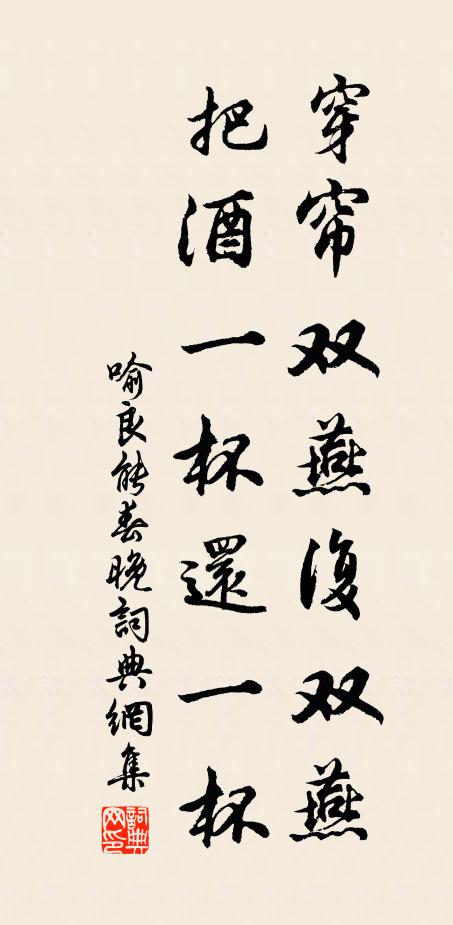 穿帘双燕復双燕
把酒一杯還一杯
喻良能春晚詞典網集
詞典网印